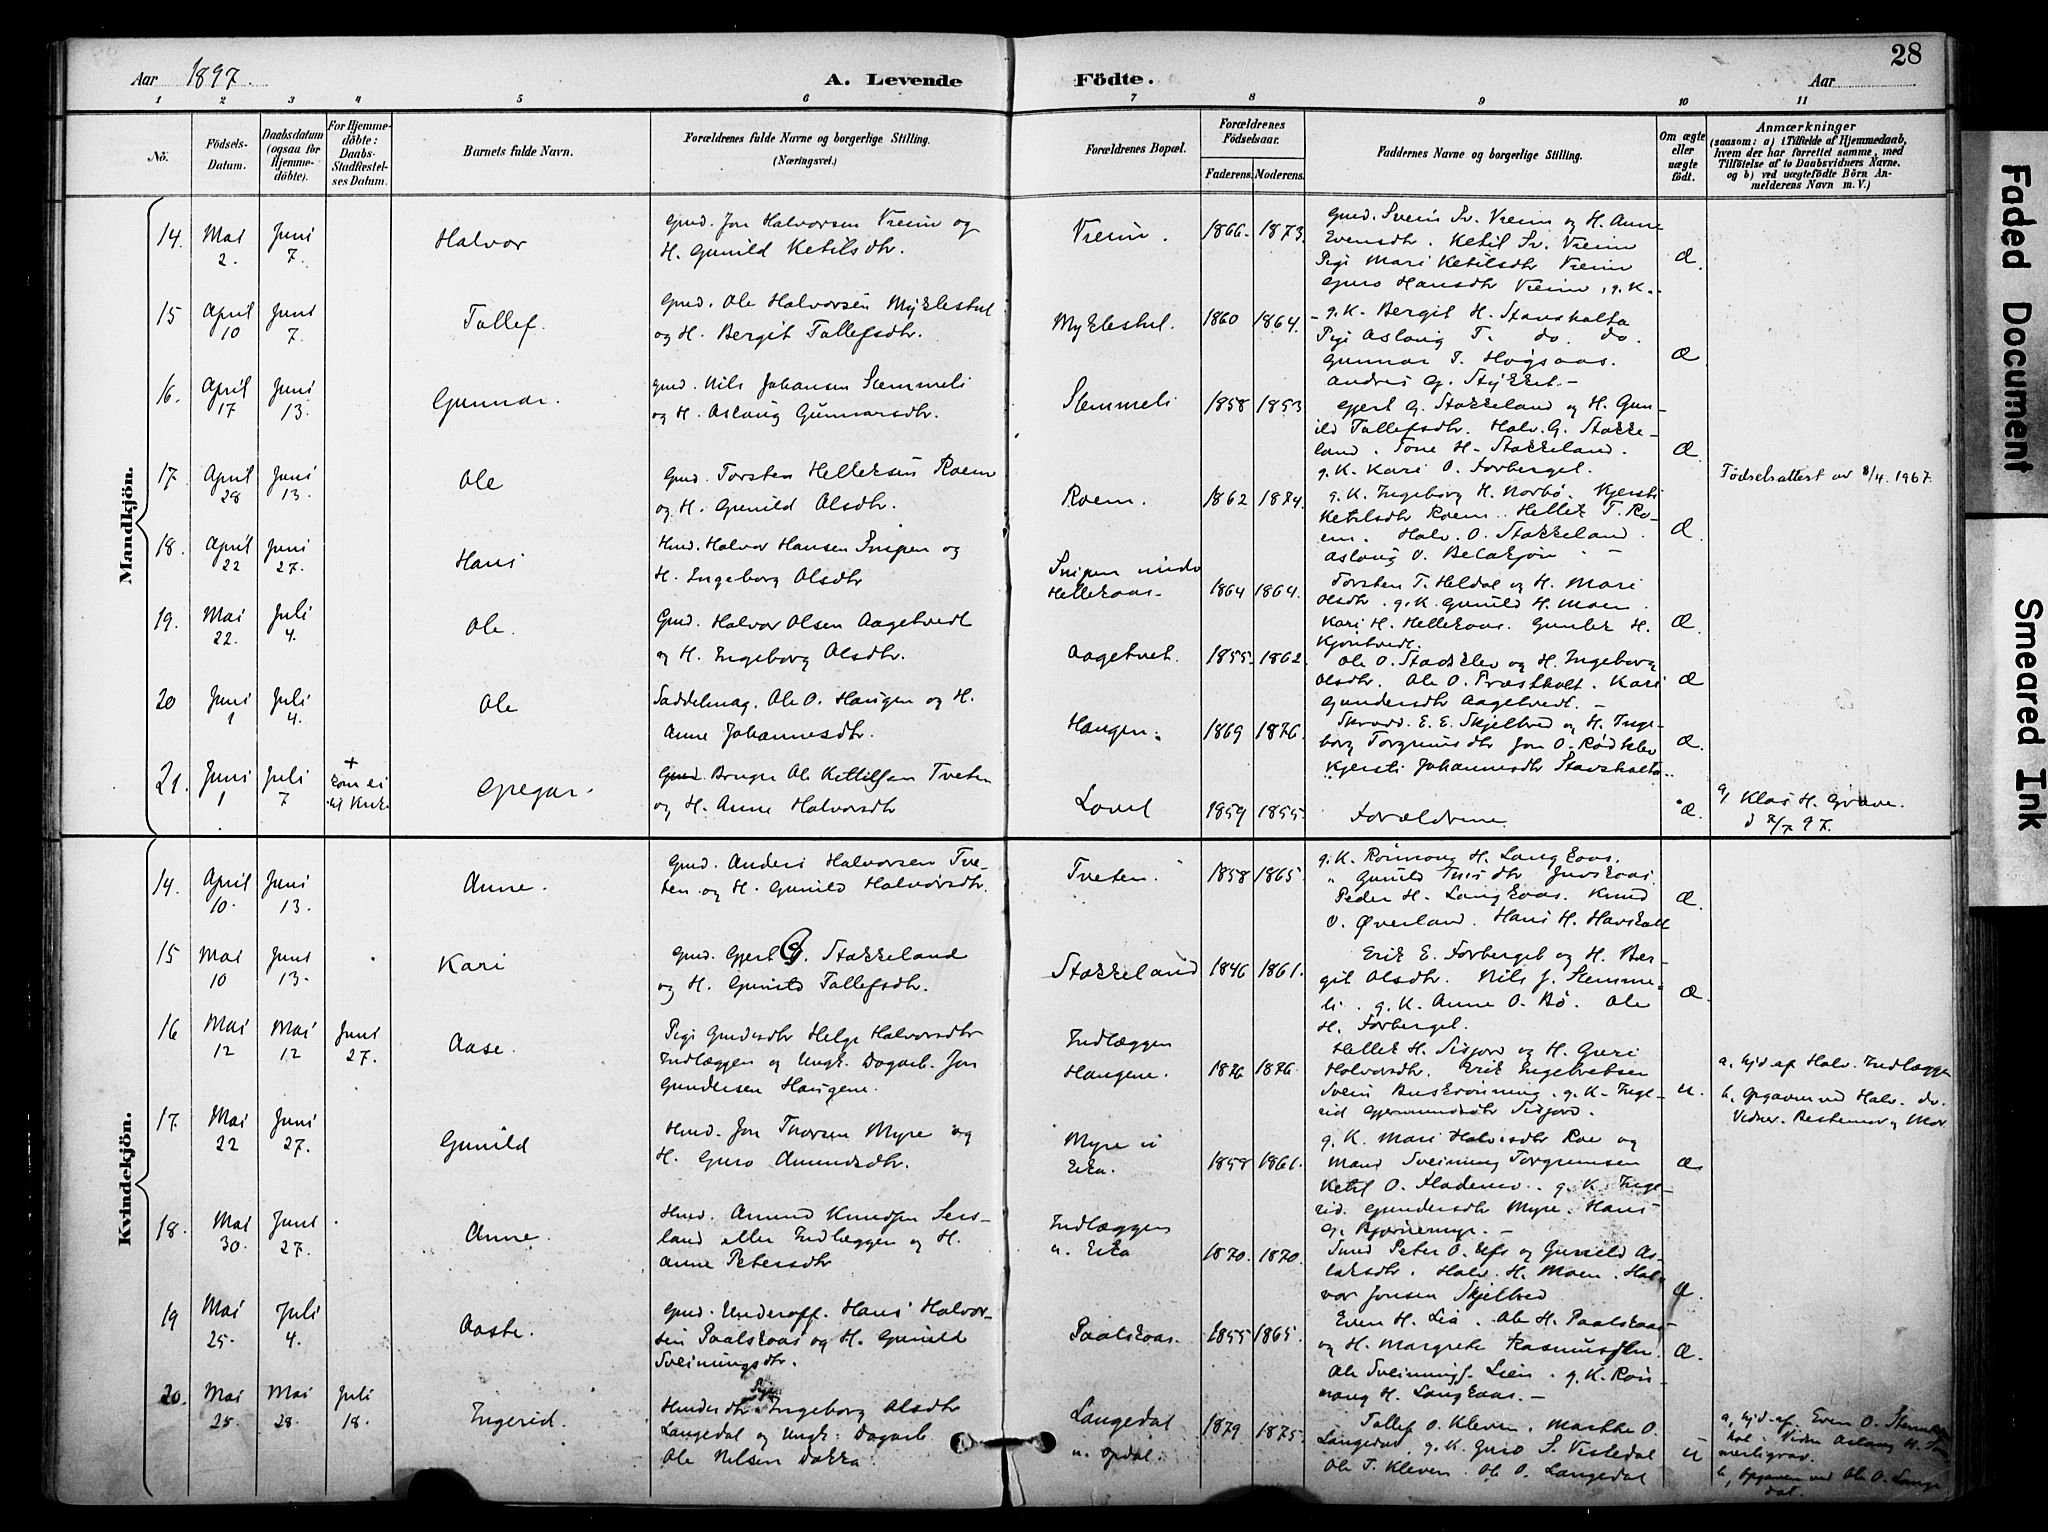 28
Aar 1897. A. Levende Födte. Aar
1 2 3 4 5 6 7 8 9 10 11
Nö.
Födsels-Datum.
Daabsdatum (ogsaa for Hjemme-döbte).
For Hjemme-döbte: Daabs-Stadfæstel-ses Datum.
Barnets fulde Navn.
Forældrenes fulde Navne og borgerlige Stilling.
(Næringsvei.)
Forældrenes Bopæl.
Forældrenes Födselsaar.
Faderens. Moderens.
Faddernes Navne og borgerlige Stilling.
Om ægte eller uægte födt.
Anmærkninger
(saasom: a) i Tilfælde af Hjemmedaab, hvem der har forrettet samme, med Tilföielse af to Daabsvidners Navne, og b) ved uægtefödte Börn An-melderens Navn m. V.)
Mandkjön.
14. Mai 2. Juni 7. Halvor
Gmd. Jon Halvorsen Vreim og
H. Gunild Ketilsdtr.
Vreim. 1866. 1873.
Gmd. Svein Sv. Vreim og H. Anne
Evensdtr. Ketil Sv. Vreim
Pige Mari Ketilsdtr Vreim
Guro Hansdtr Vreim, g. K.
Æ.
15 April 10 Juni 7. Tallef.
Gmd. Ole Halvorsen Myklestul
og H. Bergit Tallefsdtr.
Myklestul. 1860 1864.
g. K. Bergit H. Stavsholta
Pige Aslaug T. do. do.
Gunnar T. Høgsaas.
Andres G. Stykket.
Æ
16. April 17 Juni 13. Gunnar.
Gmd. Nils Johansen Slemmeli
og H. Aslaug Gunnarsdtr.
Slemmeli 1858 1853
Gjert G. Stokkeland og H. Gun-
ild Tallefsdtr. Halv. G. Stokke-
land. Tone H. Stokkeland.
g. K. Kari O. Forberget.
Æ
17. April 28 Juni 13. Ole
Gmd. Torsten Helleksen Roem
og H. Gunild Olsdtr.
Roem. 1862 1884.
g. K. Ingeborg H. Norbø. Kjersti
Ketilsdtr Roem. Hellek T. Ro-
em. Halv. O. Stokkeland.
Aslaug O.
Æ
Fødselsattest av 8/4. 1967.
18. April 22 Juni 27. Hans
Hmd. Halvor Hansen Snipen og
H. Ingeborg Olsdtr
Snipen under
Hellekaas. 1864 1864.
Torsten T. Heldal og H. Mari
Olsdtr. g. K. Gunild H. Moen.
Kari H. Hellekaas. Gunlek H.
Kjontvedt.
Æ.
19. Mai 22. Juli 4. Ole.
Gmd. Halvor Olsen Aagetvedt
og H. Ingeborg Olsdtr.
Aagetvet. 1855. 1862.
Ole O. Stadsklev og H. Ingeborg
Olsdtr. Ole O. Præstholt. Kari
Gundersdtr Aagetvedt.
Æ
20 Juni 1 Juli 4. Ole
Saddelmag. Ole O. Haugen og H.
Anne Johannesdtr.
Haugen. 1869 1876.
Skrædd. E. E. Skjelbred og H. Inge-
borg Torgrimsdtr Jon O. Rødklev
Kjersti Johannesdtr Stavsholta.
Æ.
21. Juni 1 Juli 7 + kom ei til Kirke Gregar.
Gmd. Bruger Ole Kittilsen Tveten
og H. Anne Halvorsdtr
Lovel 1859 1855.
Forældrene.
Æ.
a, Klas H. Grave.
d 7/7 97.
Kvindekjön.
14. April 10. Juni 13. Anne.
Gmd. Anders Halvorsen Tve-
ten og H. Gunild Halvorsdtr.
Tveten. 1858 1865.
g. K. Rønnoug H. Langkaas.
" Gunild Juvskaas.
Peder H. Langkaas. Knud
O. Øverland. Hans H. Havskott
Æ.
15 Mai 10 Juni 13. Kari
Gmd. Gjert G. Stokkeland
og H. Gunild Tallefsdtr.
Stokkeland 1846 1861.
Erik E. Forberget og H. Ber-
git Olsdtr. Nils J. Slemme-
li. g. K. Anne O. Bø. Ole
H. Forberget.
Æ.
16 Mai 12 Mai 12 Juni 27. Aase.
Pige Gmdsdtr Helge Halvorsdtr
Indlæggen og Ungk. Dagarb. Jon
Gundersen Haugene.
Indlæggen
Haugene. 1876 1876.
Hellek H. Sisjord og H. Guri
Halvorsdtr. Erik Ingelvetsen
Svein Buskrønning. g. K. Inge-
rid Gjermundsdtr Sisjord.
u.
a, hjd. af Halv. Indlæggen
b, Opgaven ved Halv. do.
Vidner. Bestemor og Mor
17. Mai 22 Juni 27. Gunild
Hmd. Jon Thorsen Myre og
H. Guro Amundsdtr.
Myre u
Eika. 1859 1861.
g. K. Mari Halv.sdtr Roe og
Mand Sveinung Torgrimsen
Ketil O. Flademo. g. K. Inge-
rid. Gundersdtr Myre. Hans
G. Bjørnemyr.
Æ
18. Mai 30. Juni 27. Anne.
Hmd. Amund Knudsen Seis-
land eller Indlæggen og H.
Anne Petersdtr
Indlæggen
u. Eika 1870. 1870.
Smed Peter O. Refs og Gunild As-
laksdtr. Halv. H. Moen. Hal-
vor Jonsen Skjelbred
Æ.
19 Mai 25. Juli 4. Aaste.
Gmd. Underoff. Hans Halvor-
sen Paalskaas og H. Gunild
Sveinungsdtr.
Paalskaas. 1855 1865.
Even H. Lia. Ole H. Paalskaas
og H. Margrete Rasmusdtr.
Ole Sveinungs. Lien. g. K. Røn-
noug H. Langkaas.
Æ.
20. Mai 25. Mai 28. Juli 18. Ingerid.
Hmdsdtr Pige Ingeborg Olsdtr
Langedal og Ungk. Dagarb.
Ole Nilsen Dokka.
Langedal
u. Opdal. 1879 1875.
Tallef O. Kleven. Marthe O.
Langedal. g. K. Guro S. Vistedal
Ole T. Kleven. Ole O. Langedal
u
a, hjd. af Even O.
Vidner Aslaug H.
b, Opgaven ved Ole O. Lange
dal.
Faded Document
Smeared Ink